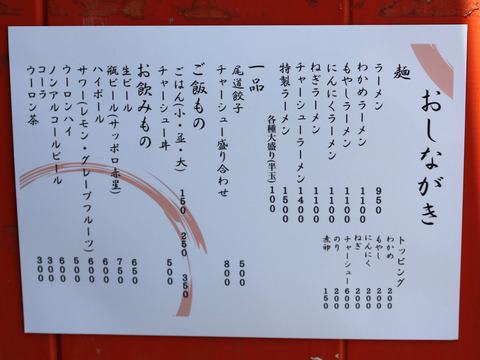 おしながき
麺
ラーメン 950
わかめラーメン 1100
もやしラーメン 1100
にんにくラーメン 1100
ねぎラーメン 1100
チャーシューラーメン 1400
特製ラーメン 1500
各種大盛り(半玉) 100
トッピング
わかめ 200
もやし 200
にんにく 200
ねぎ 200
チャーシュー 600
のり 200
煮卵 150
一品
尾道餃子 500
チャーシュー盛り合わせ 800
ご飯もの
ごはん(小・並・大) 150 250 350
チャーシュー丼 500
お飲みもの
生ビール 650
瓶ビール(サッポロ赤星) 750
ハイボール 600
サワー(レモン・グレープフルーツ) 600
ウーロンハイ 500
ノンアルコールビール 600
コーラ 300
ウーロン茶 300